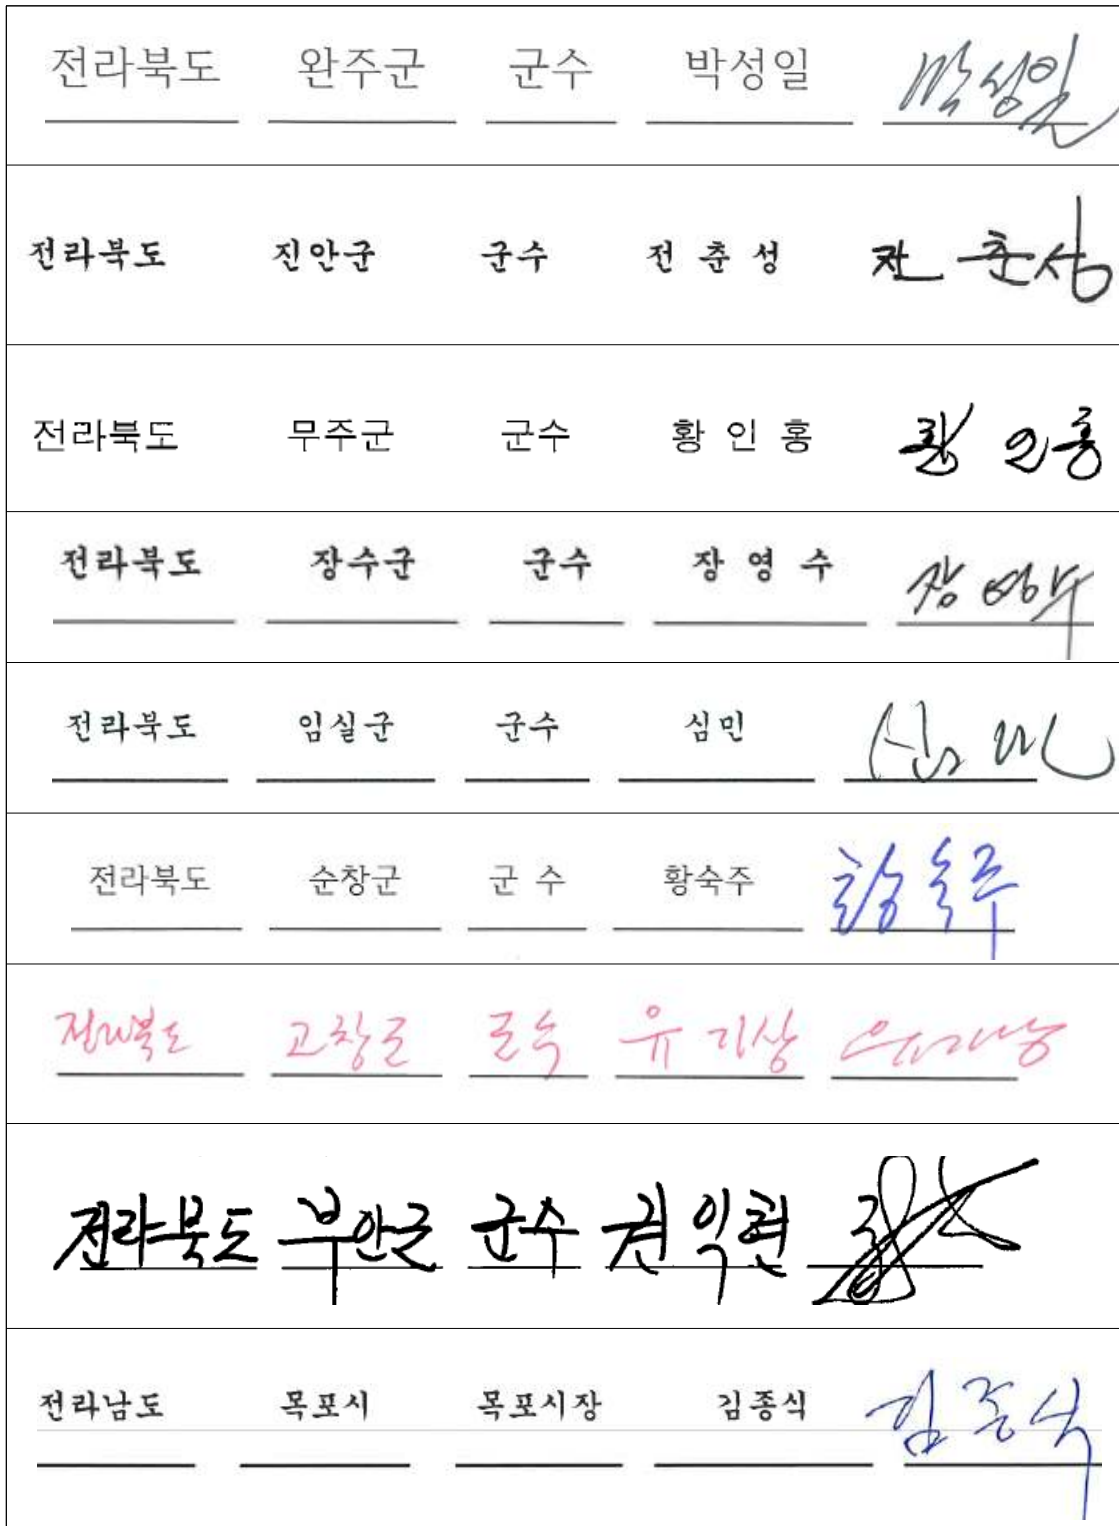 전라북도 완주군 군수 박성일 박성일
전라북도 진안군 군수 전 춘 성 전 춘성
전라북도 무주군 군수 황 인 홍 황 인홍
전라북도 장수군 군수 장 영 수 장 영수
전라북도 임실군 군수 심민 심 민
전라북도 순창군 군 수 황숙주 황숙주
전라북도 고창군 군수 유 기상 유기상
전라북도 부안군 군수 권익현
전라남도 목포시 목포시장 김종식 김종식